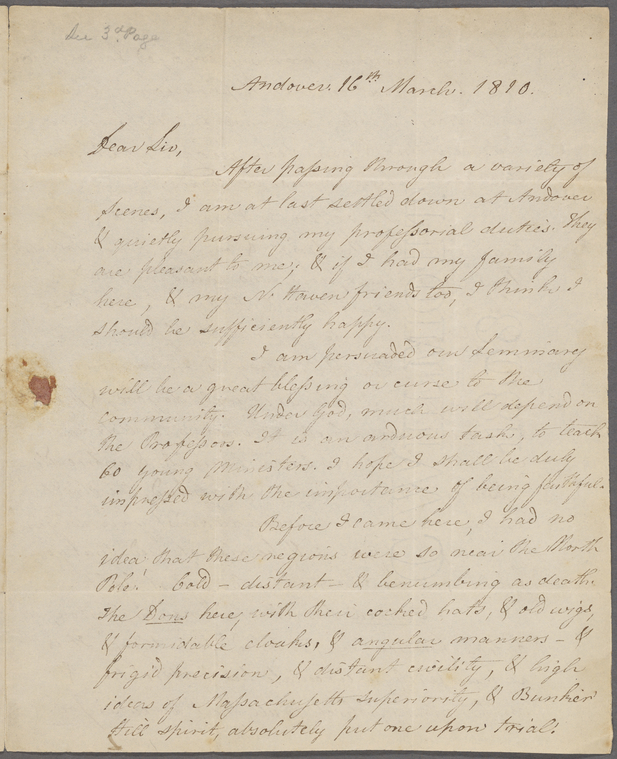 See 3d. Page
Andover. 16th March. 1810.
Dear Sir,
After passing through a variety of
scenes, I am at last settled down at Andover
& quietly pursuing my professorial duties. They
are pleasant to me; & if I had my family
here, & my N. Haven friends too, I think I
should be sufficiently happy.
I am persuaded our Seminary
will be a great blessing or curse to the
community. Under God, much will depend on
the Professors. It is an arduous task, to teach
60 young Ministers. I hope I shall be duly
impressed with the importance of being faithful.
Before I came here, I had no
idea that these regions were so near the North
Pole! Cold – distant – & benumbing as death.
The Dons here, with their cocked hats, & old wigs,
& formidable cloaks, & angular manners – &
frigid precision, & distant civility, & high
ideas of Massachusetts superiority, & Bunker
Hill spirit, absolutely put one upon trial.